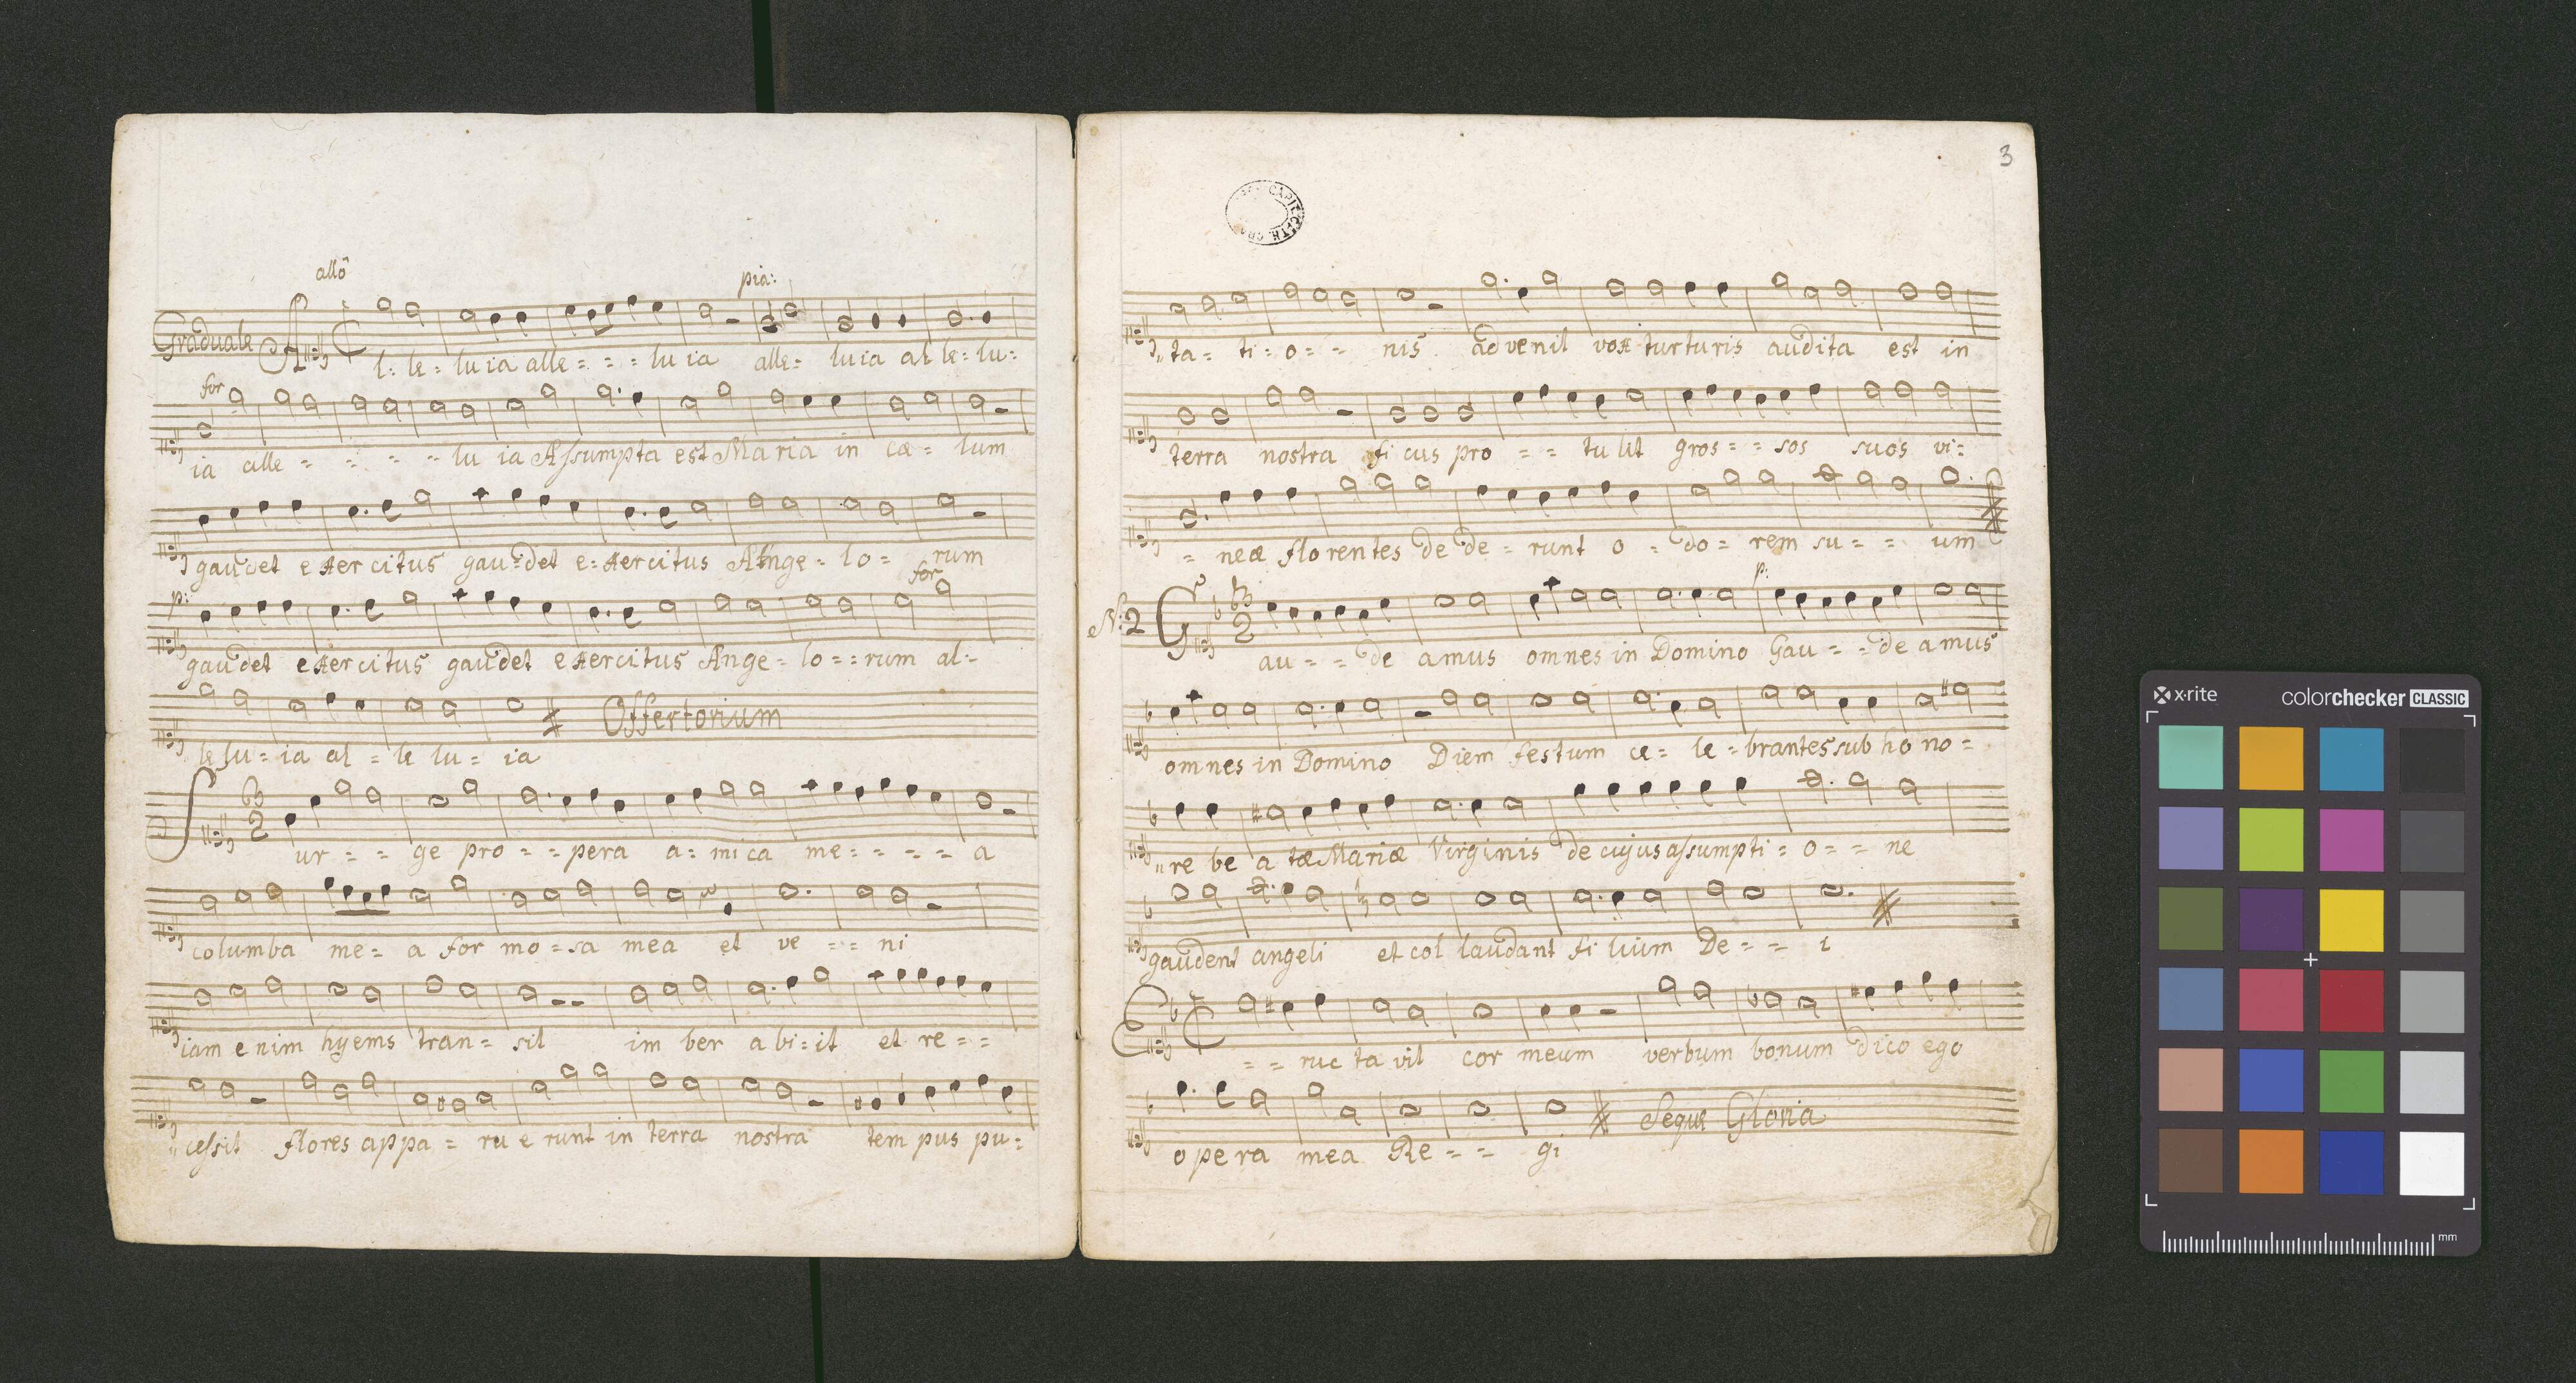 allo
pia:
Graduale
Al: le: lu ia alle: - - - lu ia alle: lu ia al le: lu:
for
ia alle - - - - lu ia Assumpta est Maria in cæ - lum
gaudet exercitus gau: det e: xercitus Ange - lo = rum
p: for
gaudet exercitus gaudet exercitus Ange - lo - : rum al:
le lu - ia al - le lu - ia
Offertorium
3/2
Sur - - ge pro - - pera a: mica me: - - - a
columba me - a for mo - sa mea et ve - - ni
iam enim hyems tran - sit im ber a bi: it et re - -
cessit flores appa - ru e runt in terra nostra tem pus pu:
3
CAPIT
ta - ti - o - - nis advenit vox turturis audita est in
terra nostra fi cus pro - - tu lit gros - - sos suos vi:
- neæ florentes de de - runt o - do - rem su - - um
N: 2
3/2
p:
Gau - - de amus omnes in Domino Gau - - de amus
omnes in Domino Diem festum ce - le - brantes sub ho no -
re be a tæ Mariæ Virginis de cujus assumpti - o - - ne
gaudent angeli et col laudant fi lium De - - i
E - - ruc ta vit cor meum verbum bonum dico ego
opera mea Re - - gi
Sequr Gloria
x-rite
colorchecker CLASSIC
mm